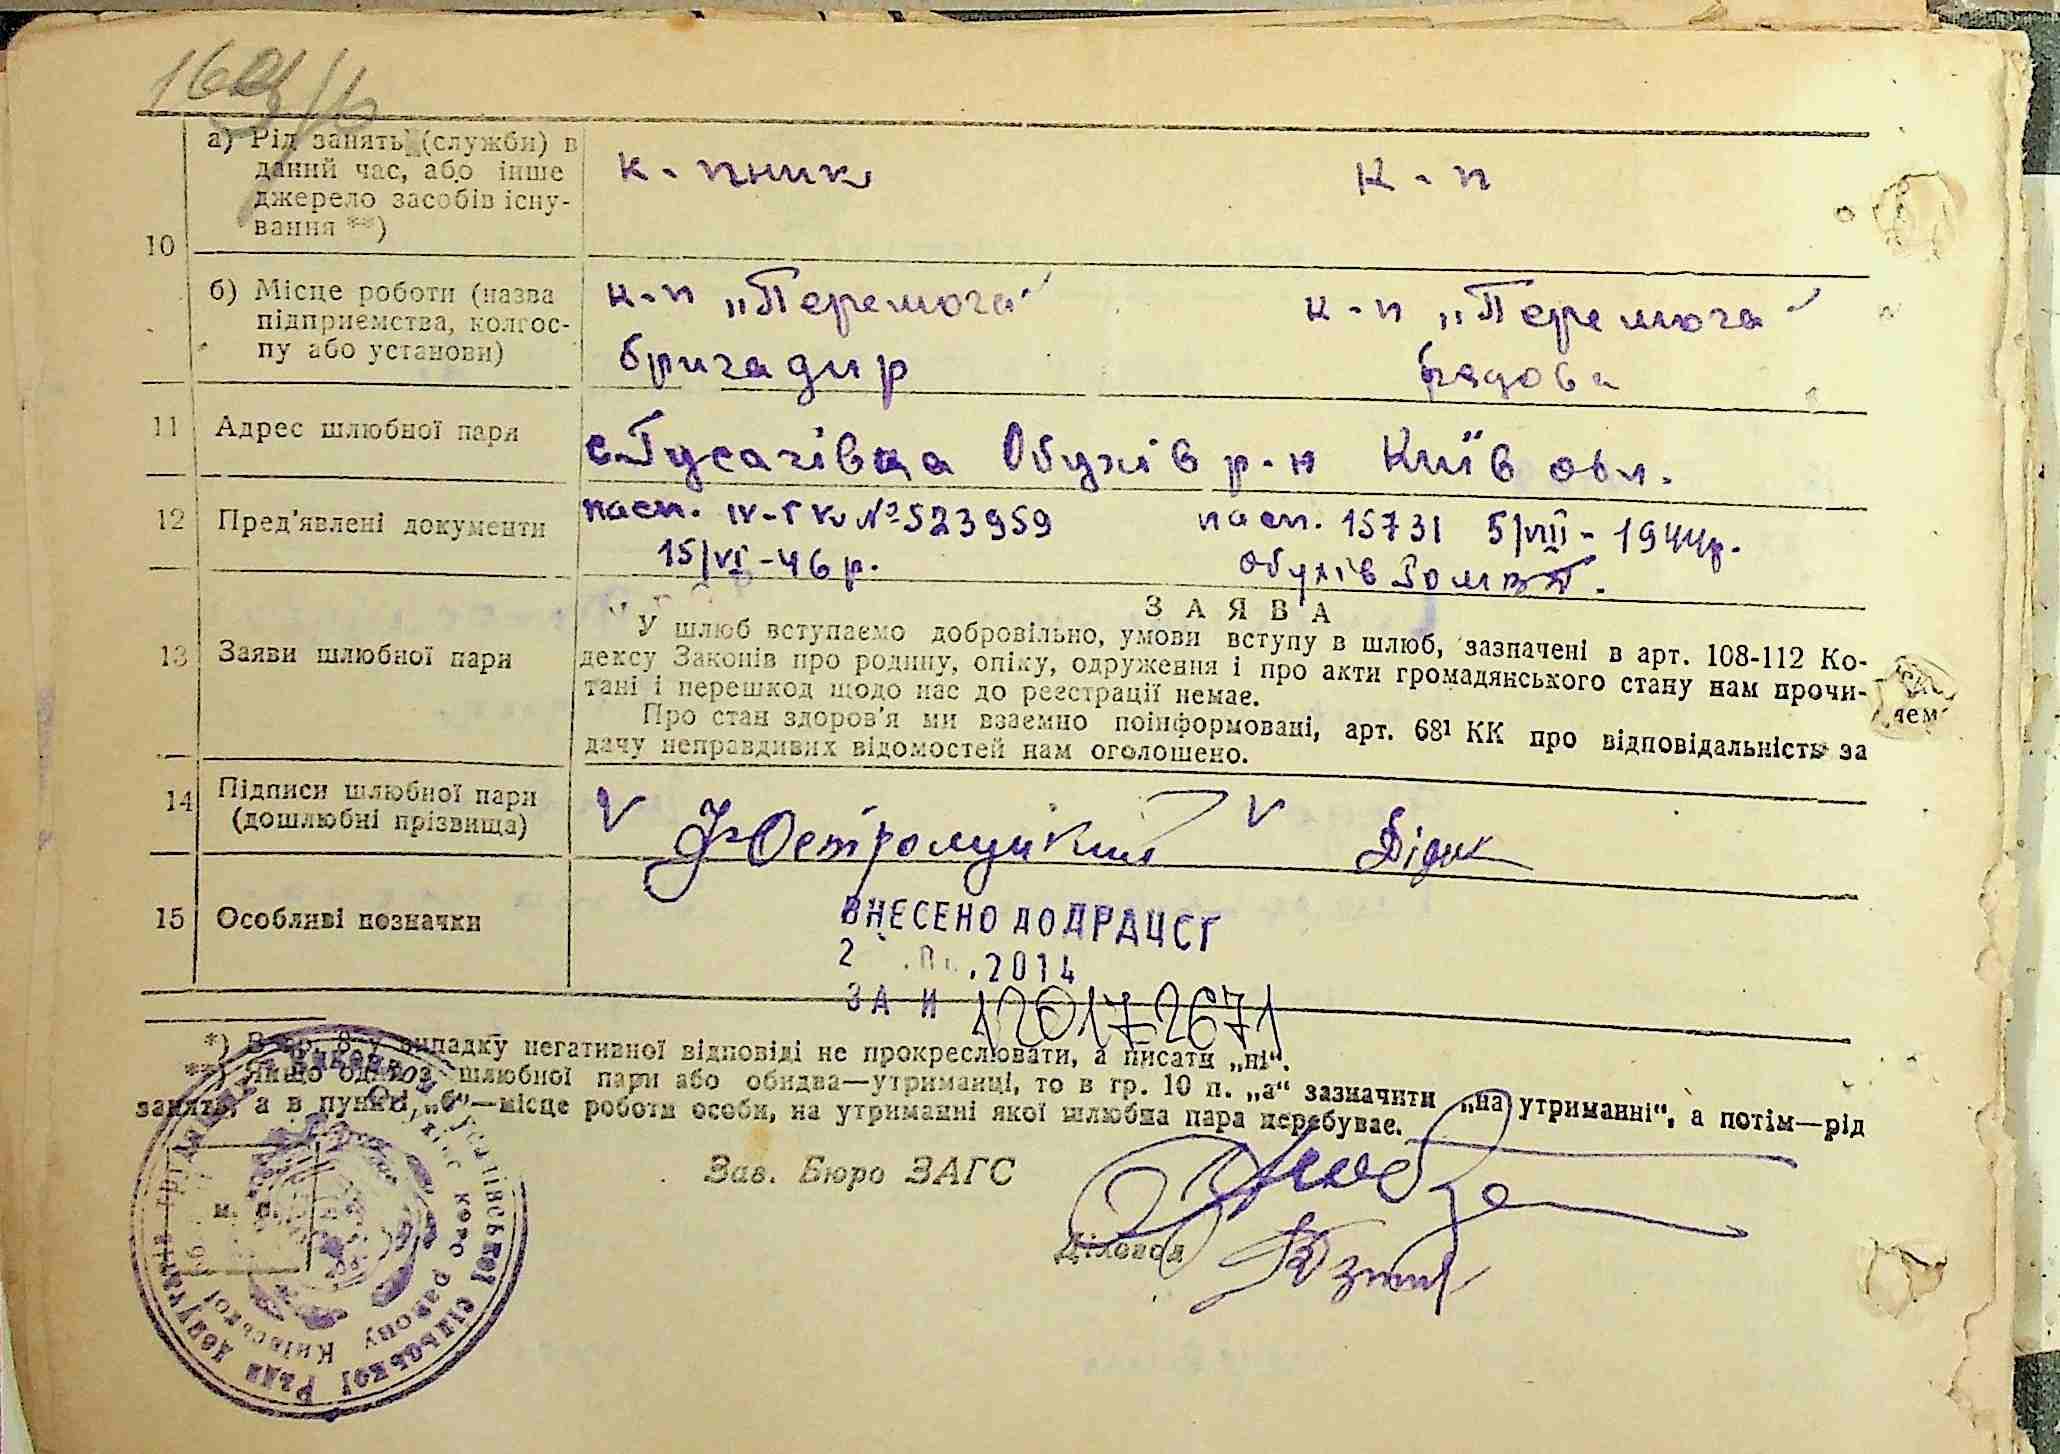 10
а) Рід занять (службн) в
даний час, або інше
джерело засобів існу-
вання **)
к-пник
к-п
б) Місце роботи (назва
підприємства, колгос-
пу або установи)
к-п „Перемога"
бригадир
к-п „Перемога"
рядова
11
Адрес шлюбної пари
с. Гусачівка Обухів р-н Київ обл.
12
Пред'явлені документи
пасп. IV-ГК №523959
15/VI-46 р.
пасп. 15731 5/VIII-1944р.
Обухів
13
Заяви шлюбної пари
ЗАЯВА
У шлюб вступаємо добровільно, умови вступу в шлюб, зазначені в арт. 108-112 Ко-
дексу Законів про родину, опіку, одруження і про акти громадянського стану нам прочи-
тані і перешкод щодо нас до реєстрації немає.
Про стан здоров'я ми взаємно поінформовані, арт. 68¹ КК про відповідальність за
дачу неправдивих відомостей нам оголошено.
14
Підписи шлюбної пари
(дошлюбні прізвища)
V
V Дідик
15
Особливі позначки
ВНЕСЕНО ДО ДРАЦСГ
2 .2014
ЗА №
*) В гр. 8 у випадку негативної відповіді не прокреслювати, а писати „ні“.
**) Якщо один з шлюбної пари або обидва—утриманці, то в гр. 10 п. „а“ зазначити „на утриманні“, а потім—рід
занять, а в пункті „б“—місце роботи особи, на утриманні якої шлюбна пара перебуває.
Зав. Бюро ЗАГС
Діловод
м. п.